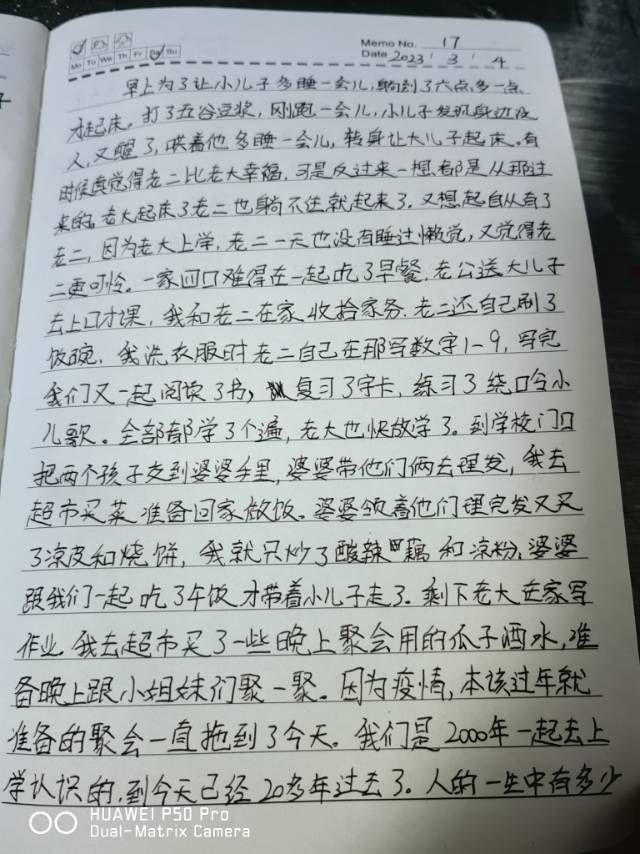 Memo No. 17
Mo Tu We Th Fr Sa Su
Date 2023 / 3 / 4
早上为了让小儿子多睡一会儿，躺到了六点多一点
才起床。打了五谷豆浆，刚跑一会儿，小儿子发现身边没
人，又醒了，哄着他多睡一会儿，转身让大儿子起床。有
时候真觉得老二比老大幸福，可是反过来一想都是从那过
来的。老大起床了老二也躺不住就起来了。又想起自从有了
老二，因为老大上学，老二一天也没有睡过懒觉，又觉得老
二更可怜。一家四口难得在一起吃了早餐，老公送大儿子
去上口才课，我和老二在家收拾家务，老二还自己刷了
饭碗，我洗衣服时老二自己在那写数字1-9，写完
我们又一起阅读了书，复习了字卡，练习了绕口令小
儿歌。全部都学了个遍，老大也快放学了。到学校门口
把两个孩子交到婆婆手里，婆婆带他们俩去理发，我去
超市买菜准备回家做饭。婆婆领着他们理完发又买
了凉皮和烧饼，我就只炒了酸辣藕和凉粉，婆婆
跟我们一起吃了午饭才带着小儿子走了。剩下老大在家写
作业，我去超市买了一些晚上聚会用的瓜子酒水，准
备晚上跟小姐妹们聚一聚。因为疫情，本该过年就
准备的聚会一直拖到了今天。我们是2000年一起去上
学认识的，到今天已经20多年过去了。人的一生中有多少
HUAWEI P50 Pro
Dual-Matrix Camera